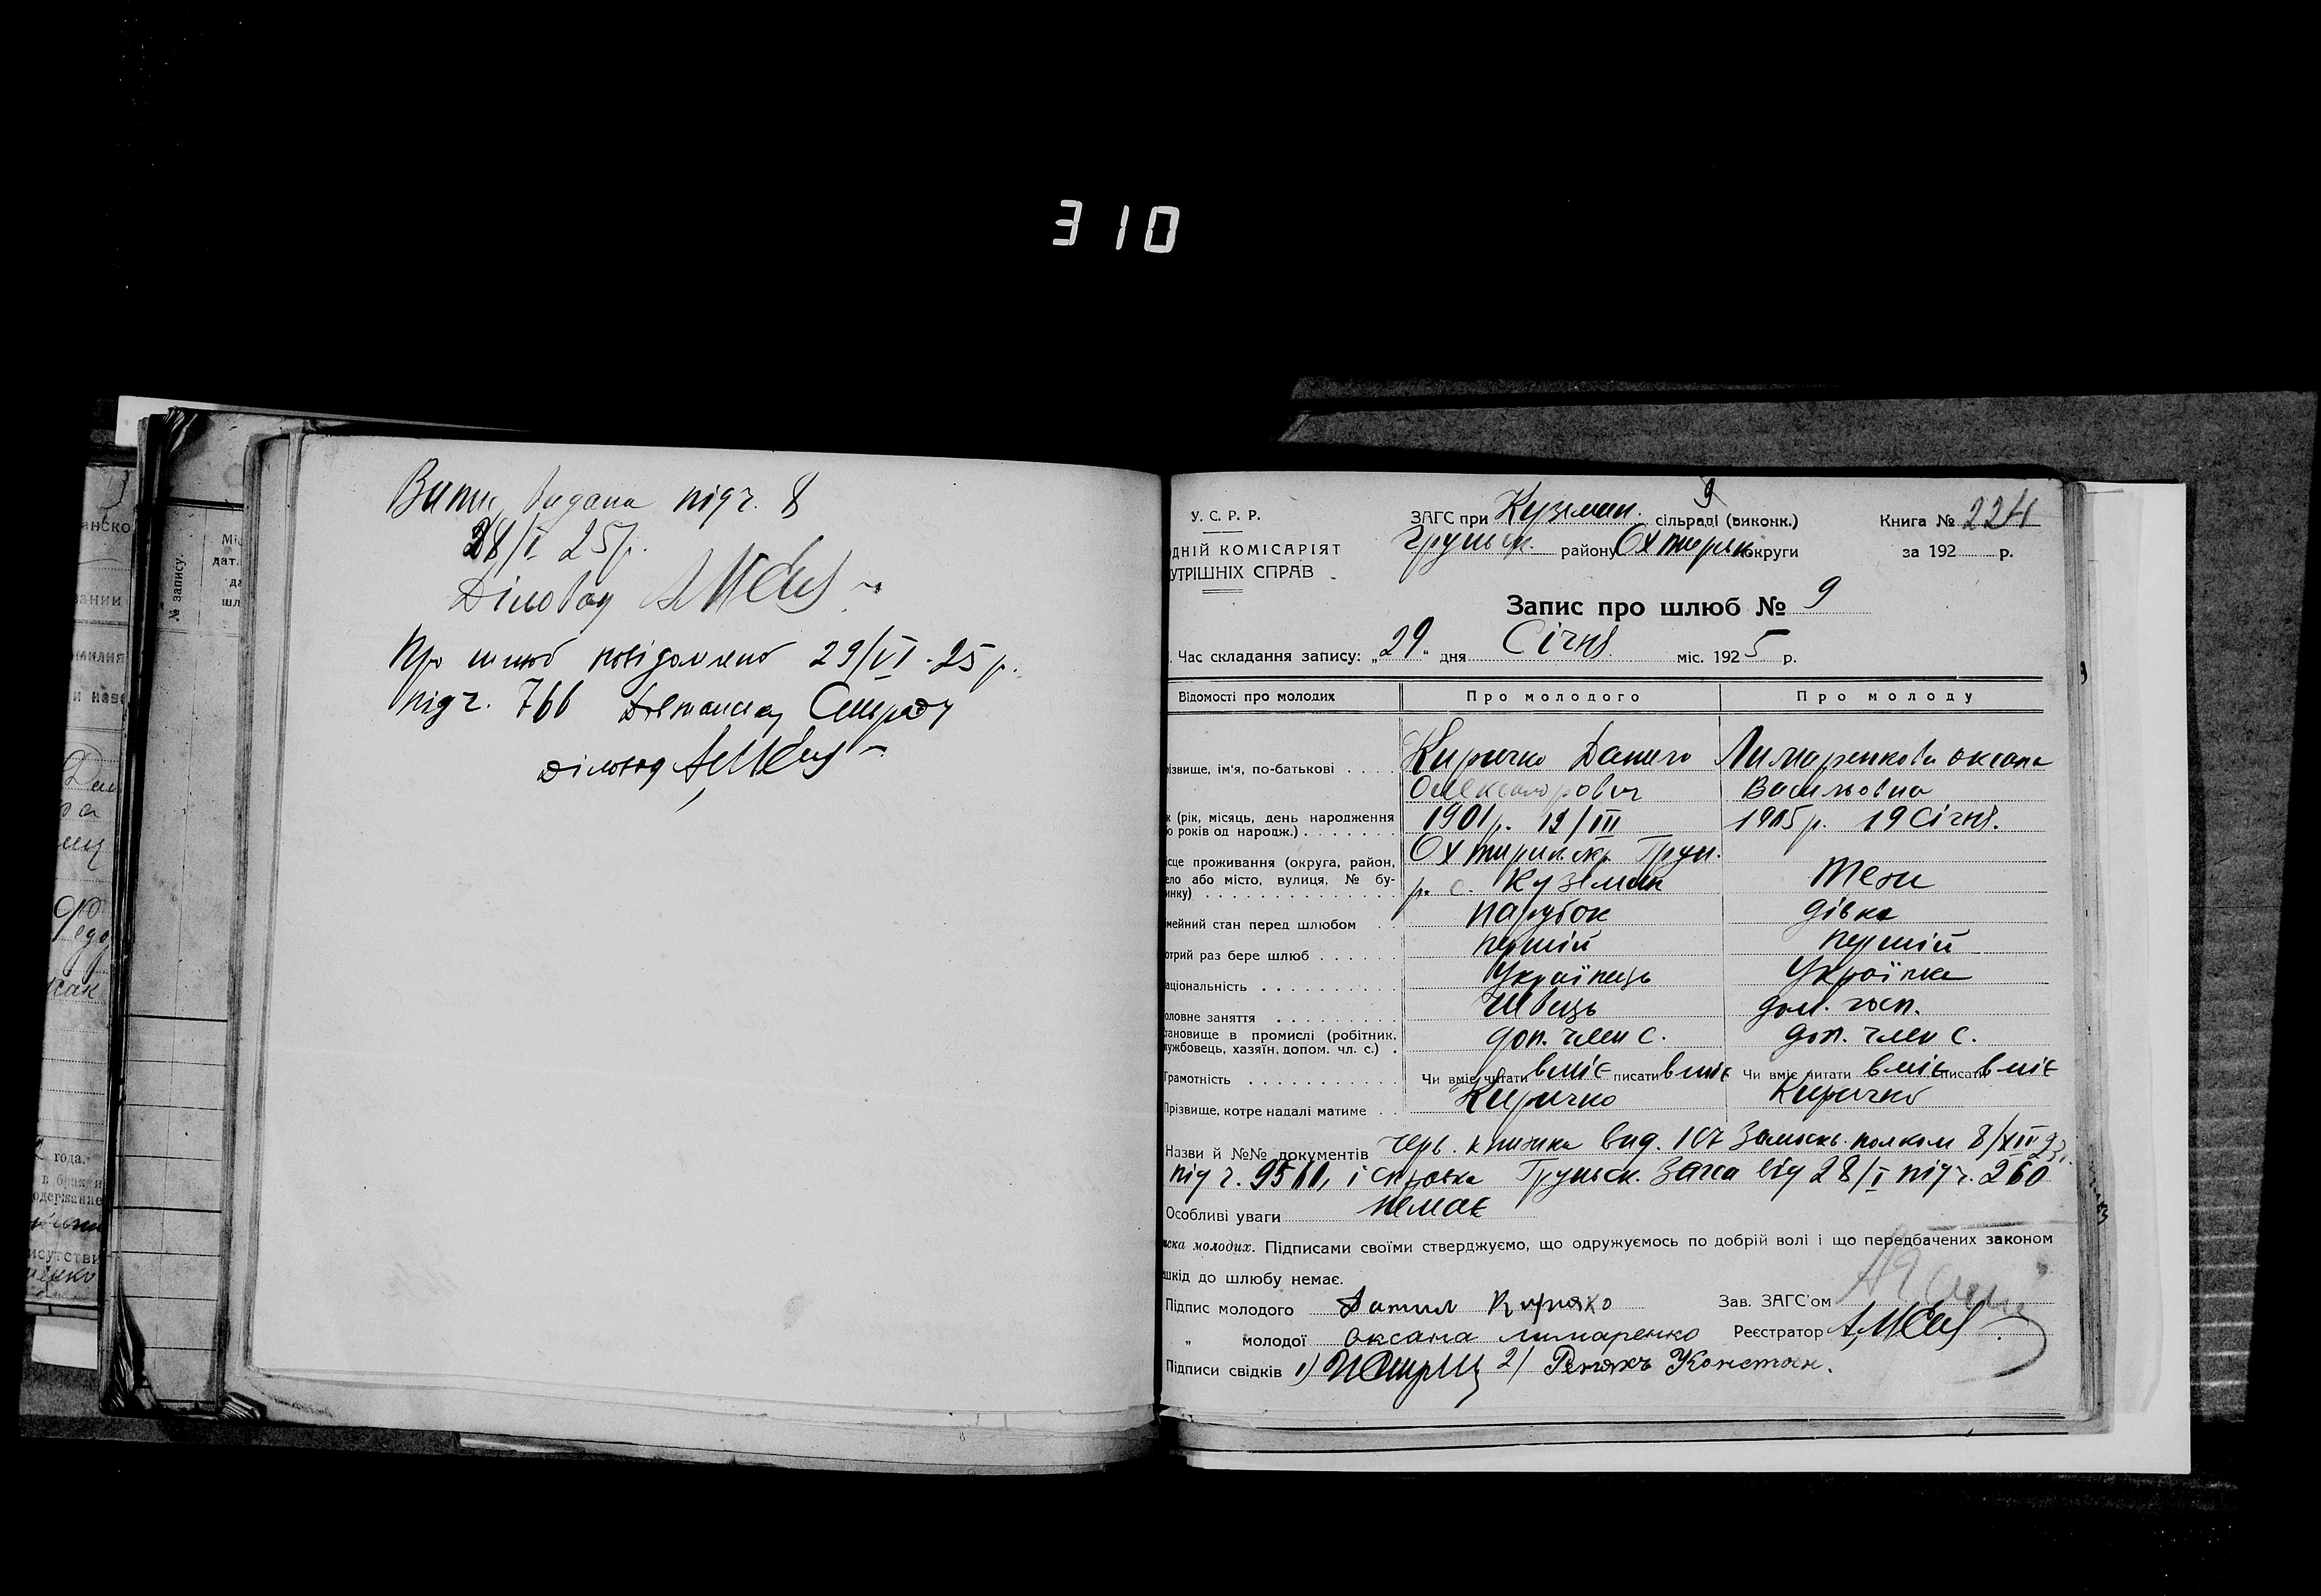 310
Випис видана під ч. 8
28/I 25 р.
Діловод
Про шлюб повідомлено 29/VI-25 р.
під ч. 766 Сільраду
діловод
У. С. Р. Р.
ДНІЙ КОМІСАРІЯТ
УТРІШНІХ СПРАВ
9
ЗАГС при Куземин. сільраді (виконк.)
Груньск. району Охтирськ округи
Книга № 224
за 192 р.
Запис про шлюб № 9
Час складання запису: „29“ дня Січня міс. 1925 р.
Відомості про молодих Про молодого Про молоду
ізвище, ім'я, по-батькові Киричко Данило Лимаренкова Оксана
Олександрович Васильовна
к (рік, місяць, день народження
о років од народж.) 1901 р. 19/III 1905 р. 19 Січня.
ісце проживання (округа, район,
ело або місто, вулиця, № бу-
инку) Охтирськ. окр. Грун.
р. с. Куземин теж
мейний стан перед шлюбом парубок дівка
отрий раз бере шлюб перший перший
аціональність Українець Українка
оловне заняття Швець дом. госп.
тановище в промислі (робітник,
лужбовець, хазяїн, допом. чл. с.) доп. член с. доп. член с.
Грамотність Чи вміє читати вміє писати вміє Чи вміє читати вміє писати вміє
Прізвище, котре надалі матиме Киричко Киричко
Назви й №№ документів черв. книжка вид. 107 полком 8/XII 23 р.
під ч. 9561, і справка Груньск. Загса від 28/I під ч. 260
Особливі уваги немає
иска молодих. Підписами своїми стверджуємо, що одружуємось по добрій волі і що передбачених законом
шкід до шлюбу немає.
Підпис молодого Данил Киричко Зав. ЗАГС'ом
„ молодої Оксана Лимаренко Реєстратор
Підписи свідків 1) 2) Констан.
№ запису.
года.